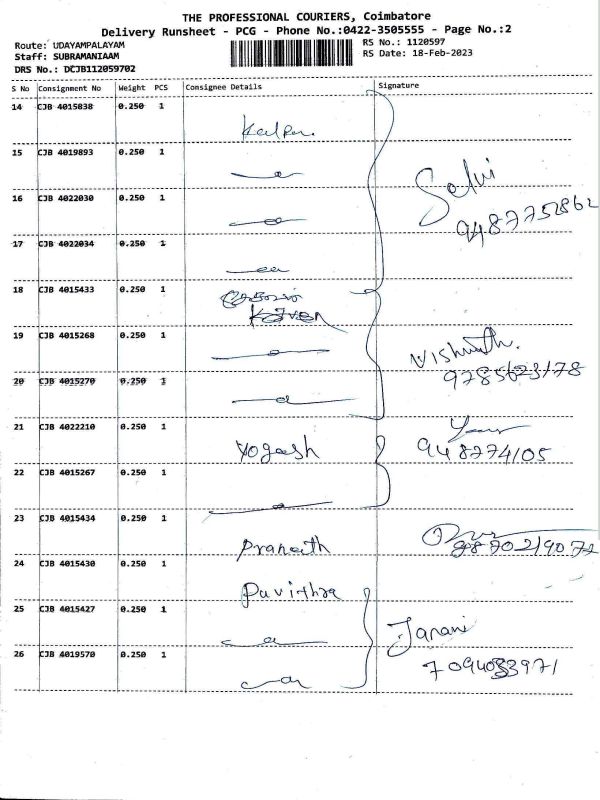 THE PROFESSIONAL COURIERS, Coimbatore
Delivery Runsheet - PCG - Phone No.:0422-3505555 - Page No.:2
Route: UDAYAMPALAYAM
RS No.: 1120597
Staff: SUBRAMANIAAM
RS Date: 18-Feb-2023
DRS No.: DCJB112059702
S No Consignment No Weight PCS Consignee Details Signature
14 CJB 4015838 0.250 1
15 CJB 4019893 0.250 1
Selvi
16 CJB 4022030 0.250 1
9487752862
17 CJB 4022034 0.250 1
18 CJB 4015433 0.250 1
19 CJB 4015268 0.250 1
Vishnuth.
20 CJB 4015270 0.250 1
9785623178
21 CJB 4022210 0.250 1 Yogesh
948274105
22 CJB 4015267 0.250 1
23 CJB 4015434 0.250 1 Praneith
24 CJB 4015430 0.250 1 Pavithra
25 CJB 4015427 0.250 1
Janani
26 CJB 4019570 0.250 1